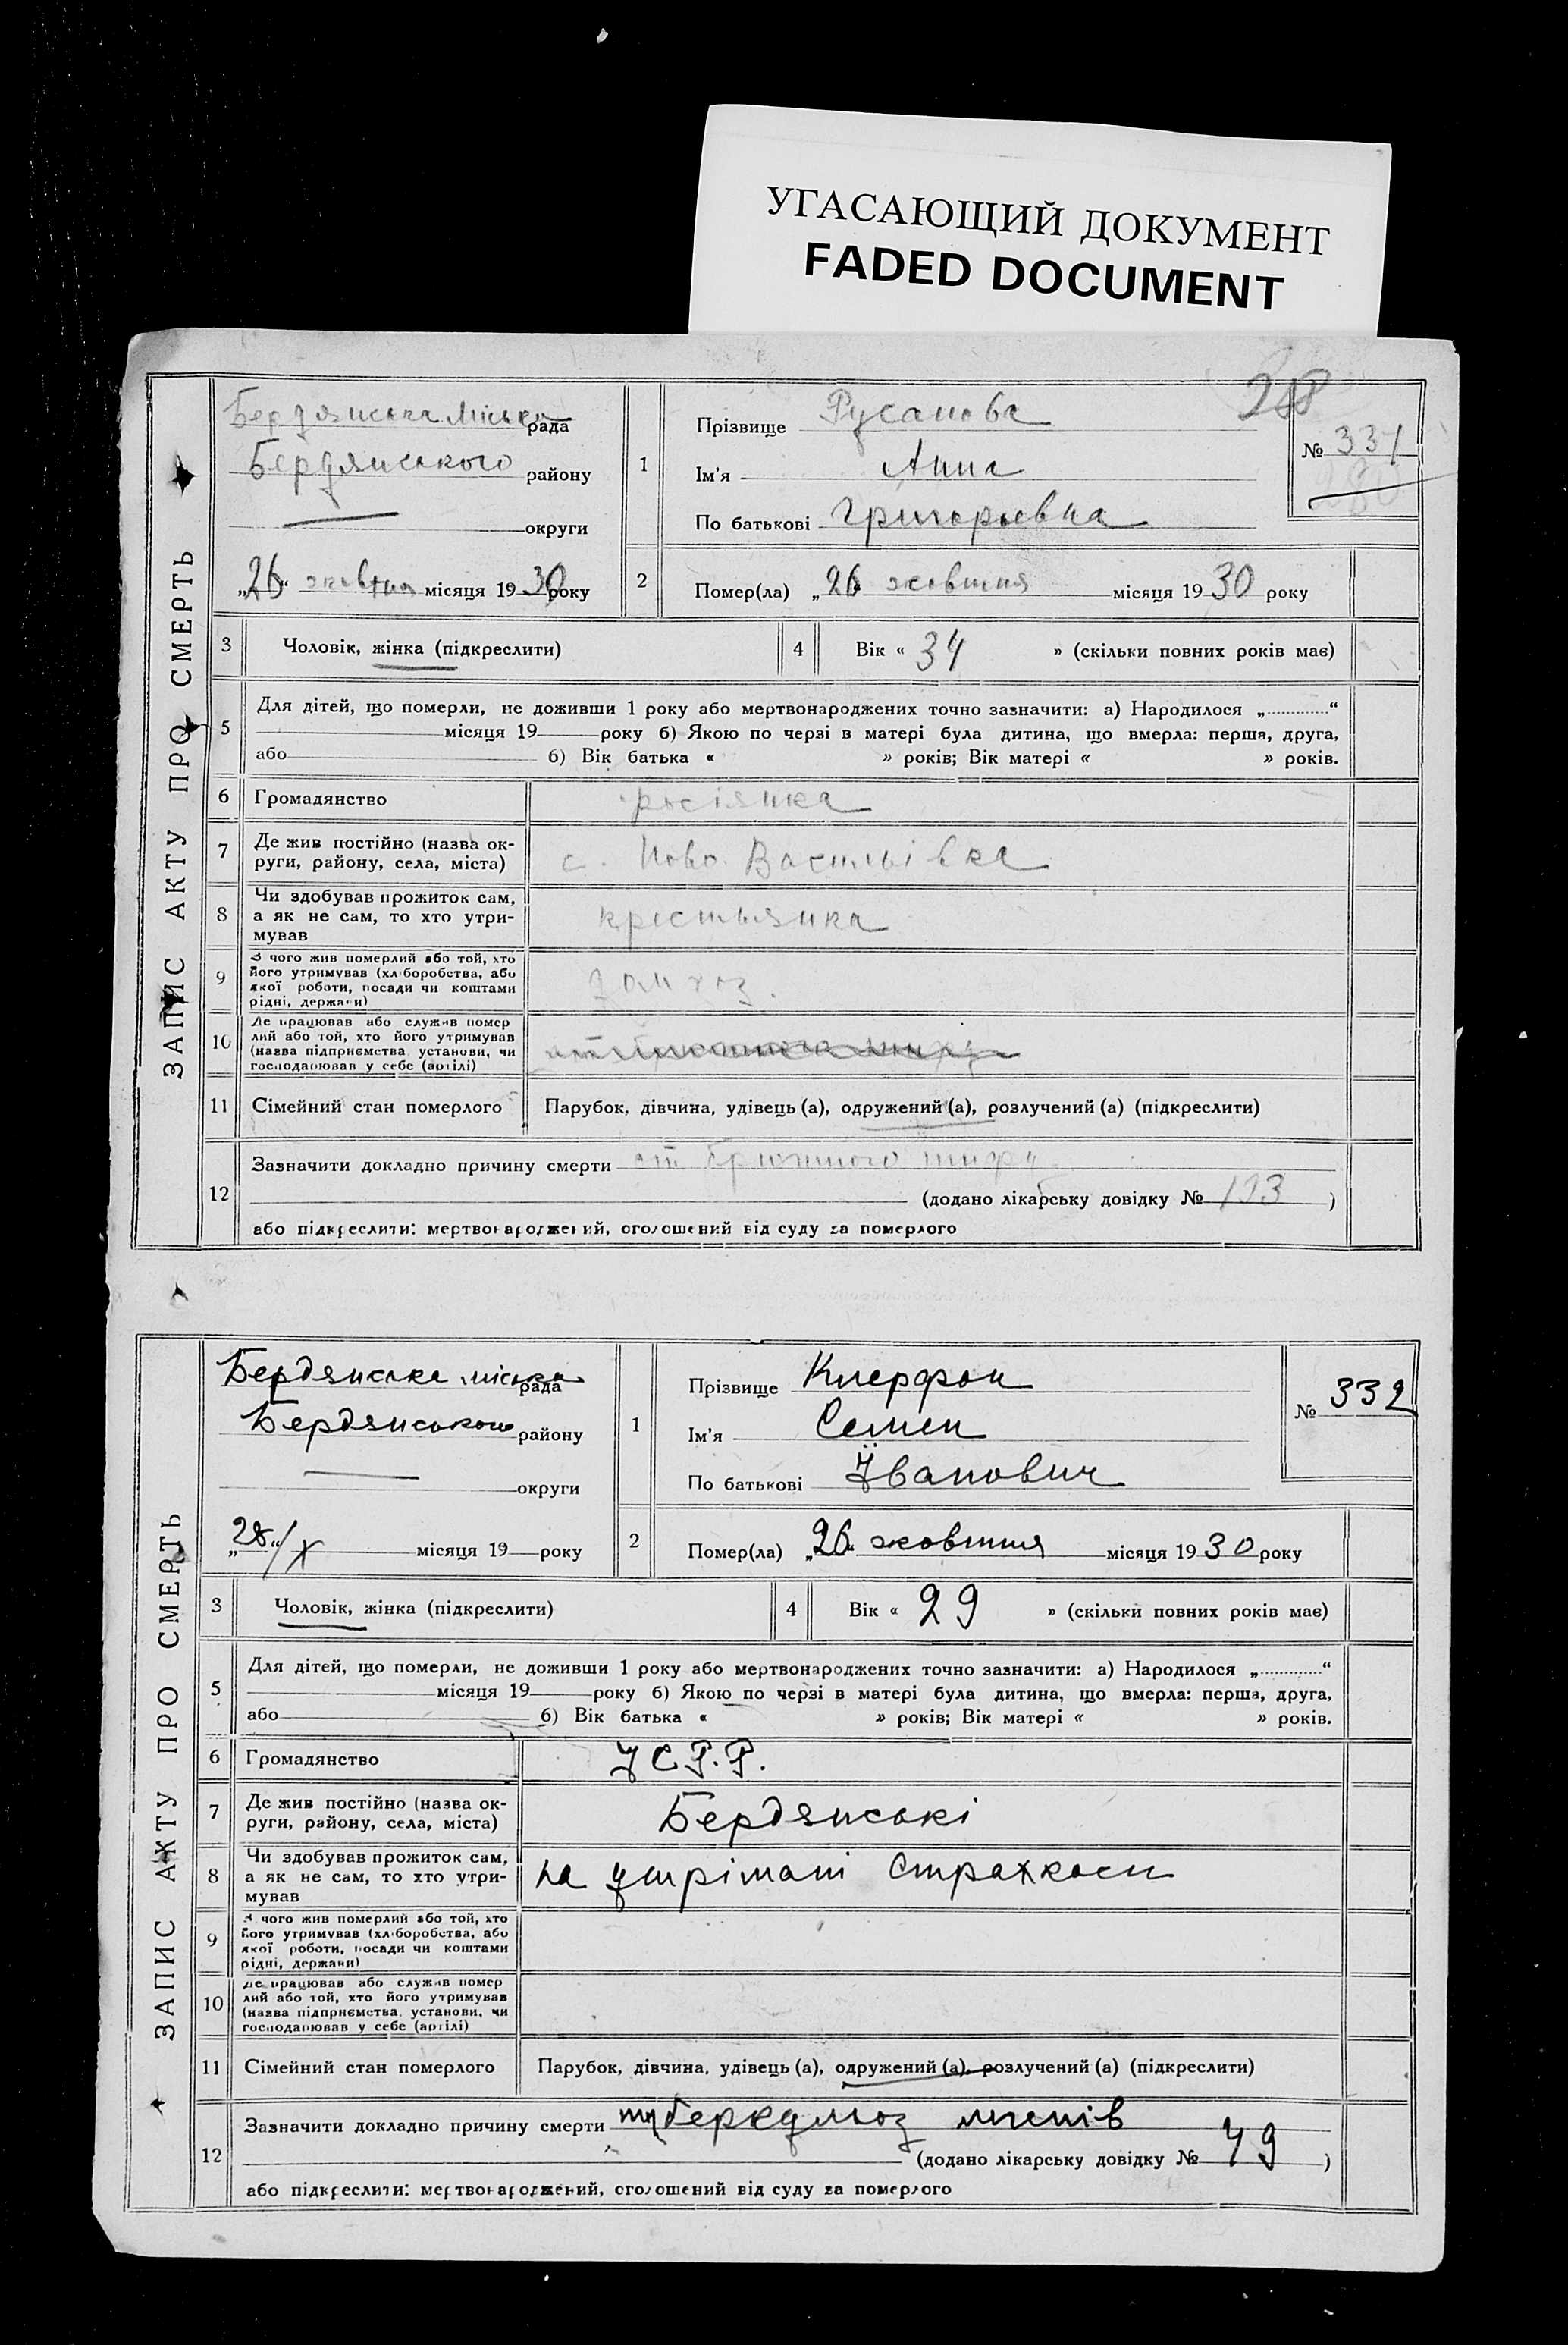 УГАСАЮЩИЙ ДОКУМЕНТ
FADED DOCUMENT
288
ЗАПИС АКТУ ПРО СМЕРТЬ
Бердянська міська рада
Бердянського району
округи
„26“ жовтня місяця 1930 року
1
Прізвище Русанова
Ім'я Анна
По батькові Григорьевна
№ 331
2
Помер(ла) „26 жовтня місяця 1930 року
3
Чоловік, жінка (підкреслити)
4
Вік « 34 » (скільки повних років має)
5
Для дітей, що померли, не доживши 1 року або мертвонароджених точно зазначити: а) Народилося „ “
місяця 19 року б) Якою по черзі в матері була дитина, що вмерла: перша, друга,
або б) Вік батька « » років; Вік матері « » років.
6
Громадянство росіянка
7
Де жив постійно (назва ок-
руги, району, села, міста)
с. Ново Васильівка
8
Чи здобував прожиток сам,
а як не сам, то хто утри-
мував
крестьянка
9
З чого жив померлий або той, хто
його утримував (хліборобства, або
якої роботи, посади чи коштами
рідні, держави)
дом хоз.
10
Де працював або служив помер
лий або той, хто його утримував
(назва підприємства, установи, чи
господарював у себе (артілі)
11
Сімейний стан померлого
Парубок, дівчина, удівець (а), одружений (а), розлучений (а) (підкреслити)
12
Зазначити докладно причину смерти от брюшного тифа
(додано лікарську довідку № 193 )
або підкреслити: мертвонароджений, оголошений від суду за померлого
ЗАПИС АКТУ ПРО СМЕРТЬ
Бердянська міська рада
Бердянського району
округи
„28“/X місяця 19 року
1
Прізвище Клерфон
Ім'я Семен
По батькові Іванович
№ 332
2
Помер(ла) „26 жовтня місяця 1930 року
3
Чоловік, жінка (підкреслити)
4
Вік « 29 » (скільки повних років має)
5
Для дітей, що померли, не доживши 1 року або мертвонароджених точно зазначити: а) Народилося „ “
місяця 19 року б) Якою по черзі в матері була дитина, що вмерла: перша, друга,
або б) Вік батька « » років; Вік матері « » років.
6
Громадянство УСР.Р.
7
Де жив постійно (назва ок-
руги, району, села, міста)
Бердянські
8
Чи здобував прожиток сам,
а як не сам, то хто утри-
мував
на утрімані Страхкаси
9
З чого жив померлий або той, хто
його утримував (хліборобства, або
якої роботи, посади чи коштами
рідні, держави)
10
Де працював або служив помер
лий або той, хто його утримував
(назва підприємства, установи, чи
господарював у себе (артілі)
11
Сімейний стан померлого
Парубок, дівчина, удівець (а), одружений (а), розлучений (а) (підкреслити)
12
Зазначити докладно причину смерти туберкульоз легенів
(додано лікарську довідку № 49 )
або підкреслити: мертвонароджений, оголошений від суду за померлого